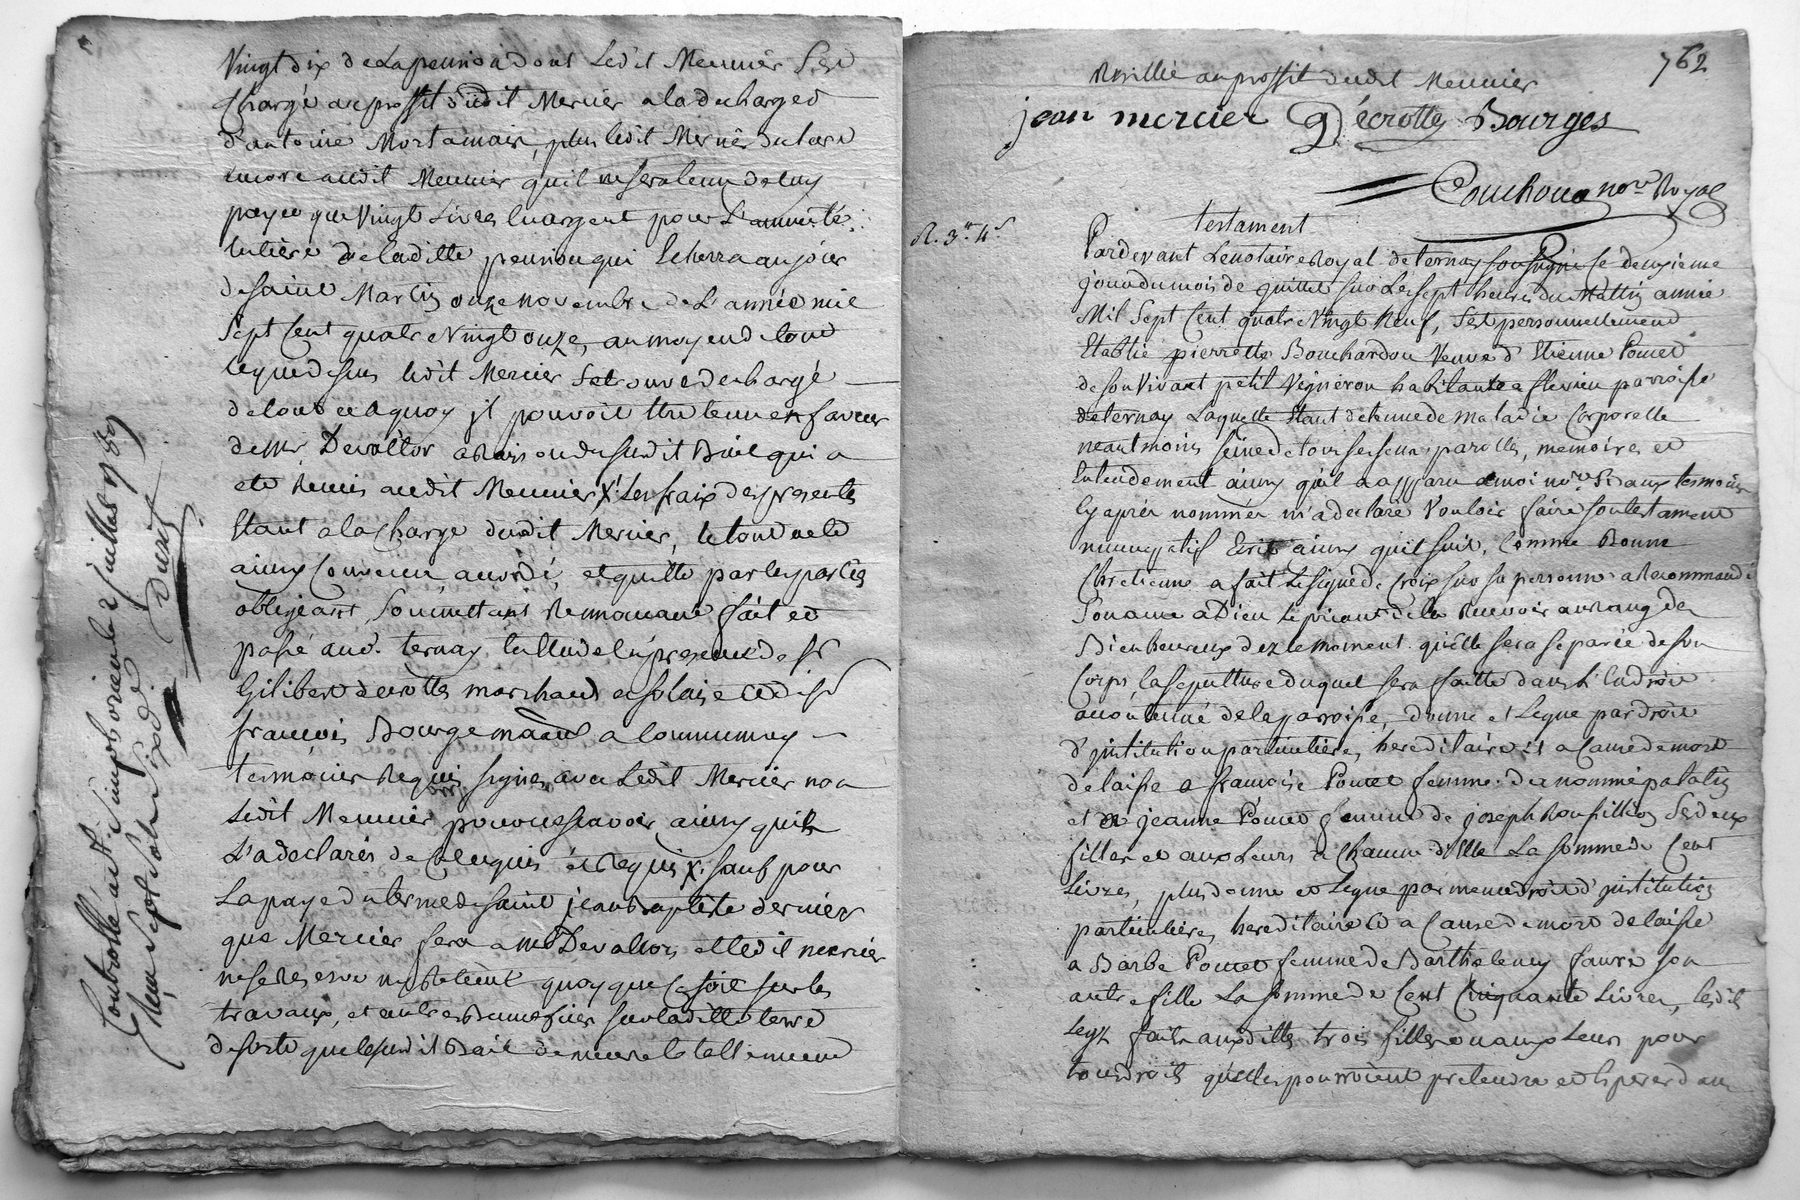 Vingt dix de la pension dont Ledit Meunier Sest
Chargé au proffit dudit Mercier a la decharge
d'antoine Mortamais, plus ledit Mercier
encore audit Meunier quil ne sera tenu de luy
payer que Vingt Livres en argent pour L'annuité
entiere de laditte pension qui Echerra au jour
de saint Martin onze novembre de L'année mil
Sept Cent quatre Vingt onze, au moyen de tout
ce que dessus ledit Mercier se trouve dechargé
de tout ce a quoy jl pouvoit Etre tenu en faveur
de Mr Devallor a Raison du susdit Bail qui a
eté Remis audit Meunier X Les fraix des presentes
Etant a la Charge dudit Mercier, le tout a eté
ainsy Convenu accordé, et quitté par les parties
obligeant, Soumettant Renonçant fait et
passé aud. ternay, Etude en presence de Sr
Gilibert decrottes marchand a solaize et de Sr
françois Bourge md a Communay
temoins Requis signes avec Ledit Mercier non
Ledit Meunier pour ne sçavoir ainsy quil
L'a declaré de Ce enquis et Requis X. sauf pour
La paye du terme de saint jean Baptiste dernier
que Mercier fera a Mr Devallor, et ledit mercier
ne se Reserve ny Retient quoy que Ce soit sur les
travaux, et autres Semences sur laditte terre
de sorte que le susdit Bail demeure totallement
Controllé a St Simphorien le 2 juillet 1789
762
Resillié au proffit dudit Meunier
jean mercier Décrottes Bourges
Couchoud nore Royal
R. 3" 4s
testament
Pardevant Le notaire Royal de ternay soussigné Ce deuxieme
jour du mois de juillet sur Les sept heures du Mattin année
Mil Sept Cent quatre Vingt Neuf, S'est personnellement
Etablie pierrette Bouchardon Veuve d'Etienne Poncet
de son Vivant petit Vigneron habitante a flevieu parroisse
de ternay Laquelle Etant detenue de maladie Corporelle
neantmoins saine de tous ses sens, parolle, memoire, et
Entendement ainsy qu'il a apparu a moi nore et aux temoins
Cy aprés nommés m'a declaré Vouloir faire son testament
nuncupatif Ecrit ainsy quil suit, Comme Bonne
Chretienne a fait Le signe de Croix sur sa personne a Recommandé
Son ame a Dieu Le priant de la Recevoir au Rang des
Bienheureux dez le moment qu'elle sera separée de son
Corps, la sepulture duquel sera faitte dans L'Endroit
accoutumé de la parroisse, donne et Legue par droit
d'jnstitution particuliere, hereditaire et a Cause de mort
delaisse a françoise Poncet femme du nommé palatin
et a jeanne Poncet femme de joseph Roussillion Ses deux
filles et aux Leurs a Chacune d'Elle La somme de Cent
Livres, plus donne et Legue par meme droit d'jnstitution
particuliere, hereditaire et a Cause de mort delaisse
a Barbe Poncet femme de Barthelemy faure son
autre fille La somme de Cent Cinquante Livres, Lesdits
Legs faits auxdittes trois filles ou aux Leurs pour
tous droits qu'elles pourroient pretendre et Esperer dans